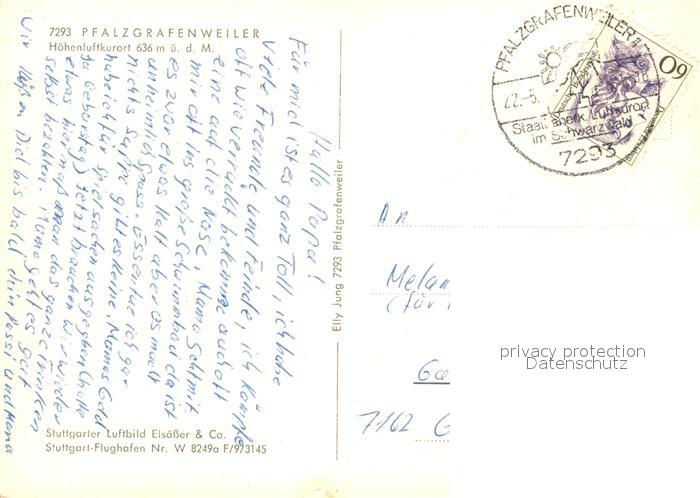 7293 PFALZGRAFENWEILER
Höhenluftkurort 636 m ü. d. M.
Hallo Papa!
Für mich ist es ganz Toll, ich habe
Viele Freunde und Feinde, ich kämpfe
oft wie verrückt bekomme auch oft
eine auf die Nose. Mama geht mit
mir oft ins große Schwimmbad da ist
es zwar etwas kalt aber es macht
unheimlich Spass. Essen tue ich gar
nichts Suppe gibt es keine. Mamas Geld
habe ich für Spielsachen ausgegeben (hatte
ja Geburtstag) jetzt brauchen wir wieder
etwas hier muß man das ganze trinken
selbst bezahlen. Mama geht es gut
wir küßen Dich bis bald dein und Mama
Stuttgarter Luftbild Elsäßer & Co.
Stuttgart-Flughafen Nr. W 8249a F/973145
Elly Jung 7293 Pfalzgrafenweiler
PFALZGRAFENWEILER
22.-5.
Staatl. anerk. Luftkurort
im Schwarzwald
7293
60
An
Melan
(für
Ga
7162 G
privacy protection
Datenschutz